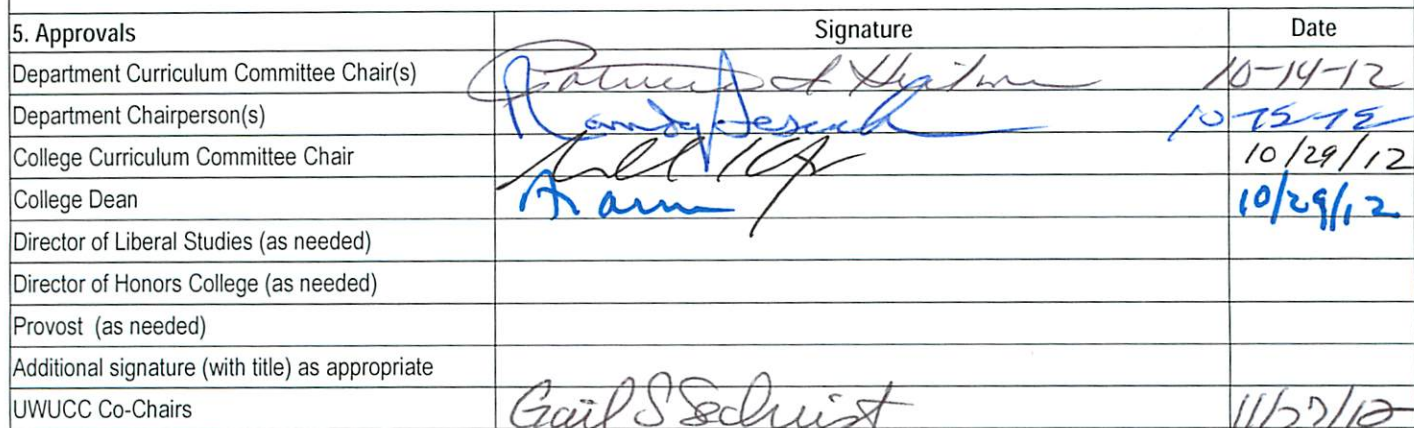 5. Approvals Signature Date
Department Curriculum Committee Chair(s) 10-14-12
Department Chairperson(s) Randy 10-15-12
College Curriculum Committee Chair 10/29/12
College Dean 10/29/12
Director of Liberal Studies (as needed)
Director of Honors College (as needed)
Provost (as needed)
Additional signature (with title) as appropriate
UWUCC Co-Chairs Gail S Sechrist 11/27/12